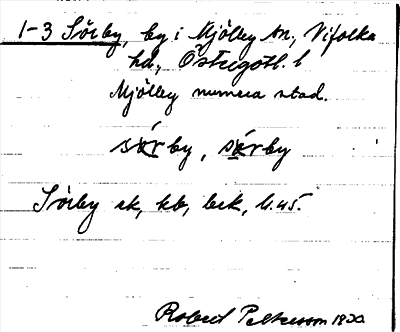 1-3 Sörby, by i Mjölby sn, Vifolka
hd, Östergötl. l
Mjölby numera stad.
sö́rby, sö̀rby
Sörby ek, kb, bek,
Robert Pettersson